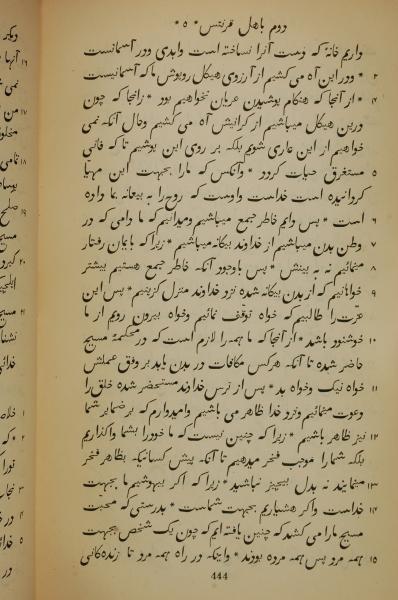 دوم باهل قرنتس * ٥ *
داریم خانهٔ که دست آنرا نساخته است وابدی ودر آسمانست
٢ * ودر این آه می کشیم از آرزوی هیکل روپوش ما که آسمانیست
٤ * از آنجا که هنکام پوشیدن عریان نخواهیم بود * زانجا که چون
درین هیکل میباشیم از کرانیش آه می کشیم وحال آنکه نمی
خواهیم از این عاری شویم بلکه بر روی این پوشیم تا که فانی
٥ مستغرق حیات کردد * وآنکس که مارا بجهت این مهیّا
کردانیده است خداست واوست که روح را به بیعانه بما داده
٦ است * پس دایم خاطر جمع میباشیم ومیدانیم که ما دامی که در
٧ وطن بدن میباشیم از خداوند بیکانه میباشیم * زیرا که بایمان رفتار
٨ مینمائیم نه به بینش * پس باوجود آنکه خاطر جمع هستیم بیشتر
٩ خواهانیم که از بدن بیکانه شده نزد خداوند منزل کزینیم * پس این
عزّت را طالبیم که خواه توقف نمائیم وخواه بیرون رویم از ما
١٠ خوشنود باشد * از آنجا که ما همه را لازم است که در محکمهٔ مسیح
حاضر شده تا آنکه هرکس مکافات در بدن یابد بر وفق عملش
١١ خواه نیک وخواه بد * پس از ترس خداوند مستحضر شده خلق را
دعوت مینمائیم ونزد خدا ظاهر می باشیم وامیدوارم که بر ضمایر شما
١٢ نیز ظاهر باشیم * زیرا که چنین نیست که ما خودرا بشما واکذاریم
بلکه شمارا موجب فخر میدهیم تا آنکه پیش کسانیکه بظاهر فخر
١٣ مینمایند نه بدل بیچیز نباشید * زیرا که اکر بیهوشیم ما بجهت
١٤ خداست واکر هشیاریم بجهت شماست * بدرستی که محبت
مسیح مارا می کشد که چنین یافته ایم که چون یک شخص بجهت
١٥ همه مرد پس همه مرده بودند * واینکه در راه همه مرد تا زنده‌کانی
444